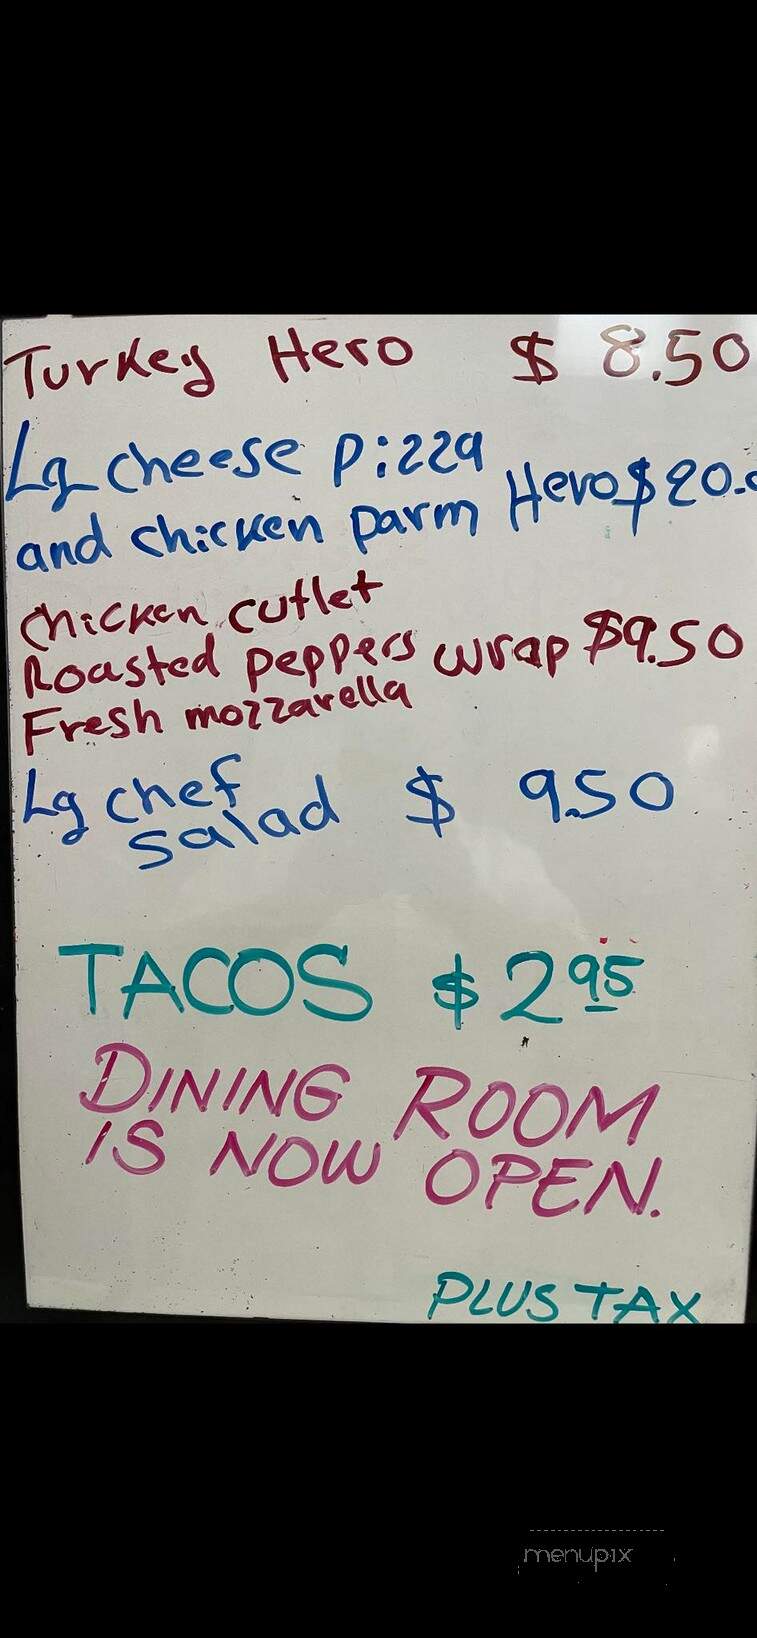 Turkey Hero $ 8.50
Lg cheese pizza
and chicken parm Hero $20.
chicken cutlet
Roasted peppers wrap $9.50
Fresh mozzarella
Lg chef
salad $ 9.50
TACOS $2.95
DINING ROOM
IS NOW OPEN.
PLUS TAX
menupix